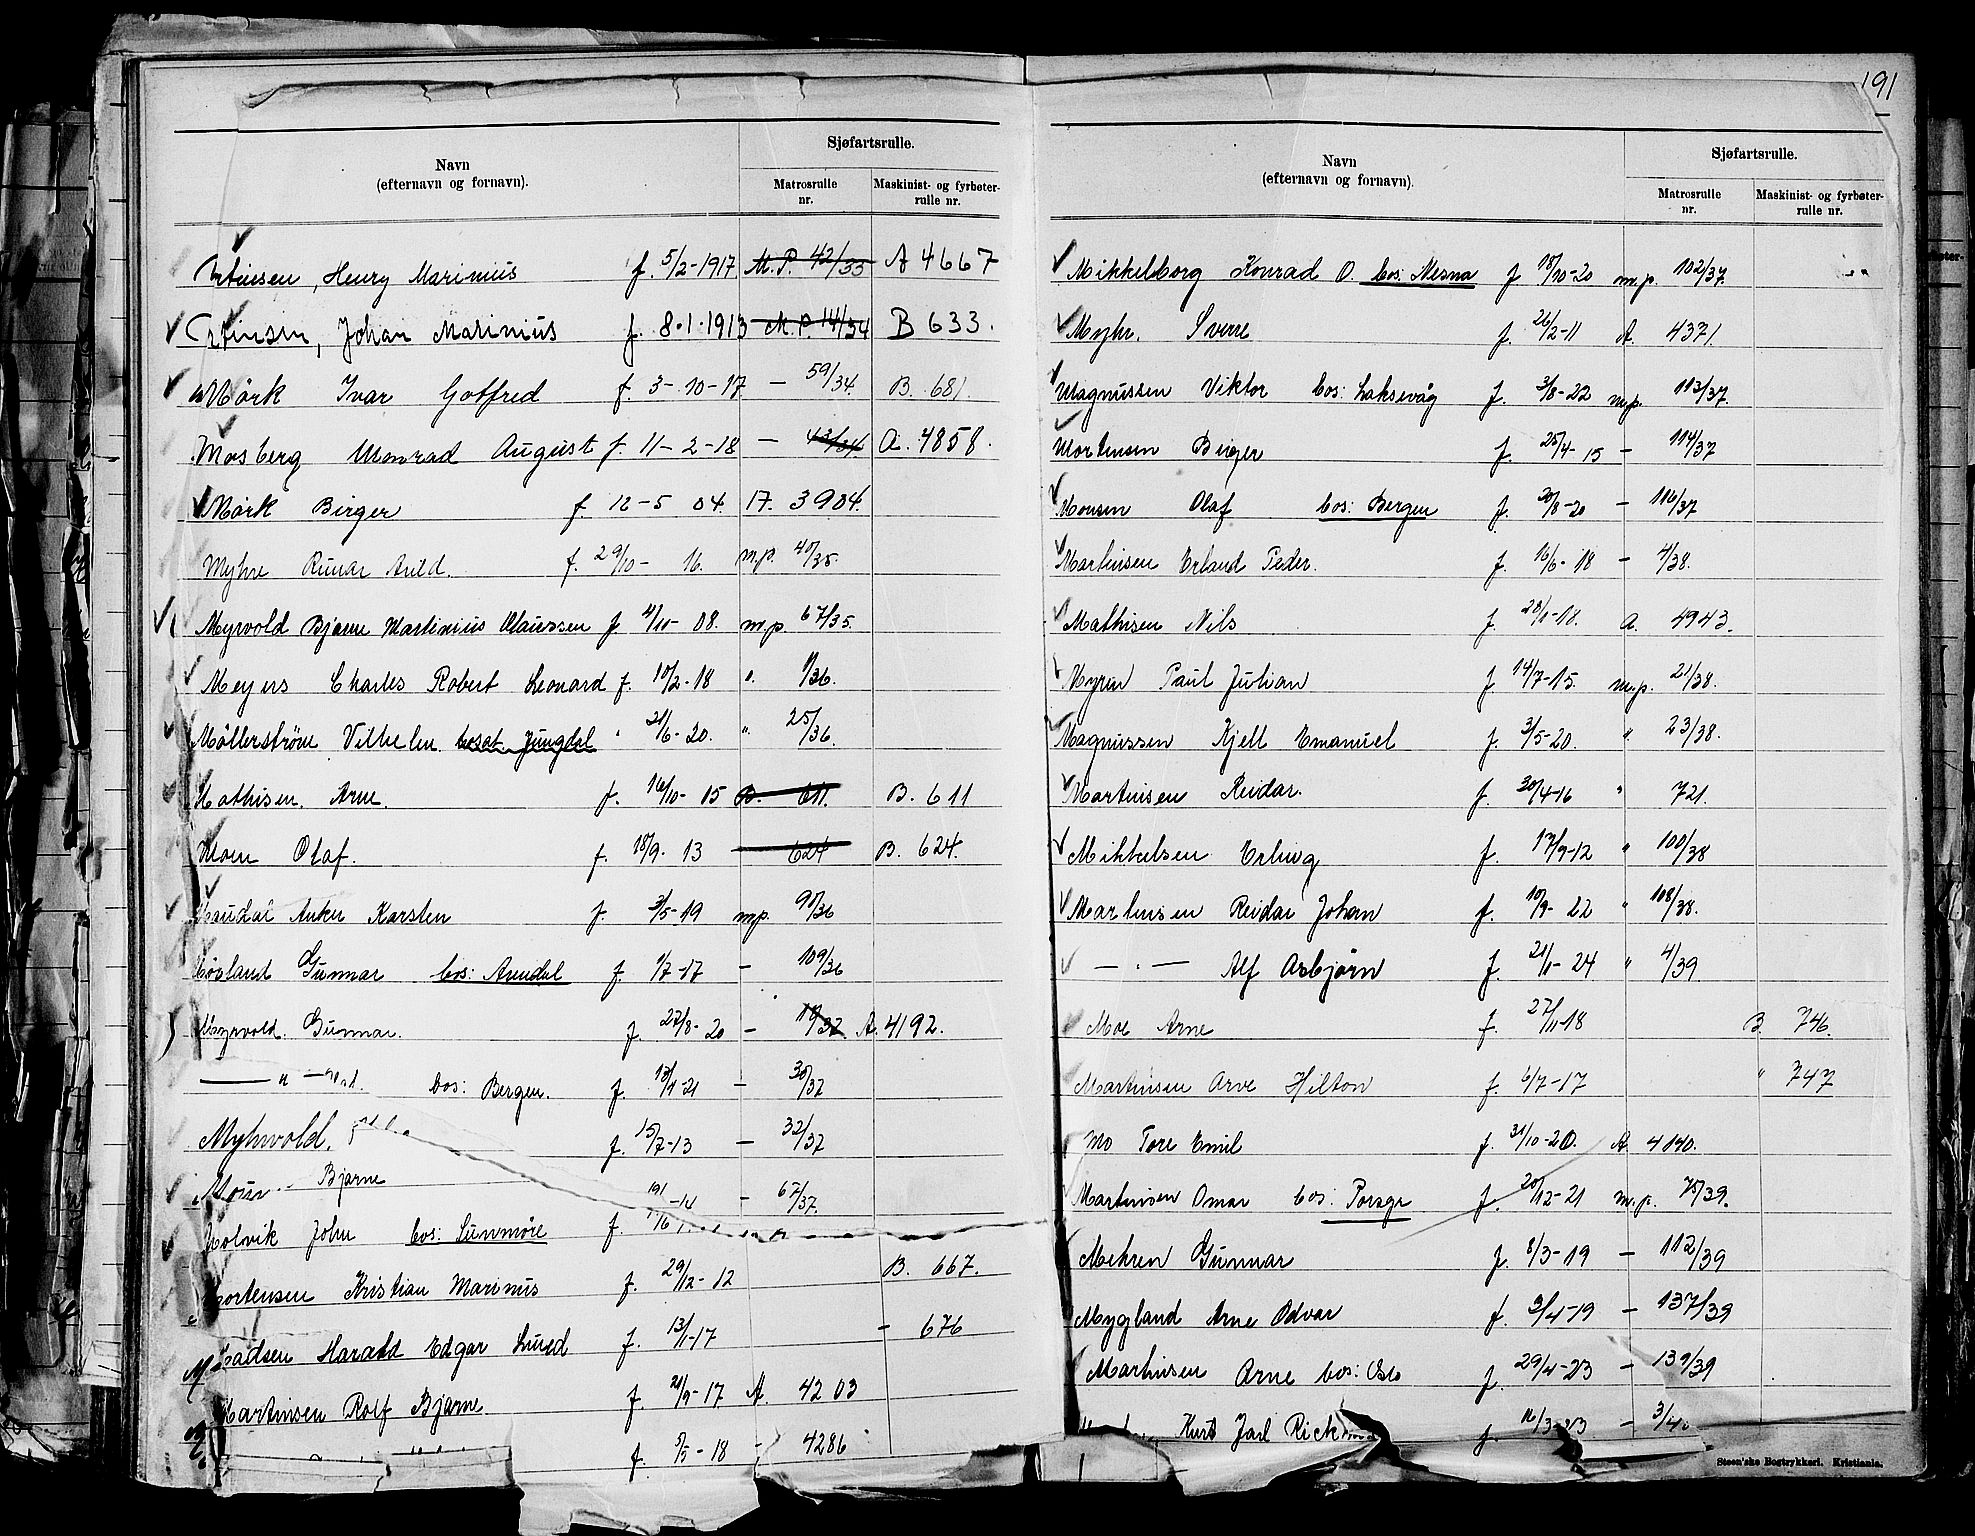 191
Navn
(efternavn og fornavn).
Sjøfartsrulle.
Matrosrulle nr.
Maskinist- og fyrbøter-rulle nr.
Henry Marinius f. 5/2-1917 M.P. 42/35 A 4667
Johan Marinius f. 8.1.1913 M.P. 14/34 B 633.
Mörk Ivar Gotfred f. 3-10-17 - 59/34. B. 681.
Mosberg Monrad August f. 11-2-18 - 43/34. A. 4858.
Mörk Birger f. 12-5 04. 17. 3904.
Myhre Runar f. 29/10- 16. m.p. 40/35.
Myrvold Bjarne Martinius Olaussen f. 4/11- 08. m.p. 67/35.
Meyers Charles Robert Leonard f. 10/2-18 " 1/36.
Möllerström Vilhelm " 21/6-20. " 25/36.
Mathisen. Arne. f. 16/10- 15 B. 611. B. 611
Moen Olaf. f. 18/9. 13 624 B. 624.
Anker Karsten f. 3/5-19 m.p. 90/36
Gunnar bos: Arendal f. 1/7-17 - 109/36
Myrvold. Gunnar. f. 27/8-20 - A. 4192.
— " — bos: Bergen. f. - 30/37
Myhrvold. f. 15/7-13 - 32/37
Bjarne - 67/37.
Molvik John bos: Sunnmöre f.
Mortensen Kristian Marinus f. 29/12-12 B. 667.
Madsen Harald Edgar f. 13/1-17 - 676
Martinsen Rolf Bjarne. f. 21/9-17 A. 4203
f. 5/5-18 - 4286
Navn
(efternavn og fornavn).
Sjøfartsrulle.
Matrosrulle nr.
Maskinist- og fyrbøter-rulle nr.
Mikkelborg Konrad O. bos: Nesna f 18/10-20 m.p. 102/37.
Myhr. Sverre f. 26/2-11 A. 4371.
Magnussen Viktor bos: Laksevåg f. 3/8-22 m.p. 113/37.
Mortensen Birger f. 25/4-15 - 114/37
Monsen Olaf bos: Bergen f. 20/8-20 - 116/37
Martinsen Erland Peder. f. 16/6-18 - 4/38.
Mathisen Nils f. 28/1-18. A. 4943.
Myren Paul Julian f 14/7-15. m.p. 21/38.
Magnussen Kjell Emanuel f. 3/5-20. " 23/38.
Martinsen Reidar. f. 30/4-16 " 721.
Mikkelsen Erling f. 17/9-12 " 100/38
Martinsen Reidar Johan f. 10/9-22 " 108/38.
— " — Alf Asbjörn f. 21/1-24 " 4/39
Moe Arne f. 27/11-18 B. 746.
Martinsen Arve Hilton f. 6/7-17 " 747
Mo Tore Emil f. 31/10-20. A. 4140.
Martinsen Omar bos: Porsgr f. 20/12-21 m.p. 75/39.
Mehren Gunnar f. 8/3-19 - 112/39
Mygland Arne Odvar f. 2/4-19 - 137/39
Martinsen Arne bos: Oslo f. 29/4-23 - 139/39
Kurt Jarl f. 16/3-23 - 3/40
Steen'ske Bogtrykkeri. Kristiania.